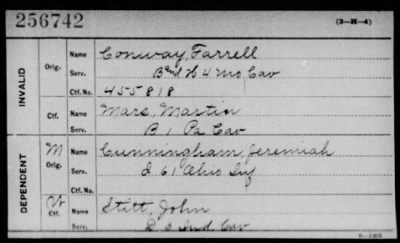 256742 (3-H-4)
INVALID
Orig. Name Conway, Farrell
Serv. H 4 Mo Cav
Ctf. No. 455818
Ctf. Name Marc, Martin
Serv. B 1 Pa Cav
DEPENDENT
M Orig. Name Cunningham, Jeremiah
Serv. I 61 Ohio Inf
Ctf. No.
Ctf. Name Stitt, John
Serv. D 3 Ind Cav